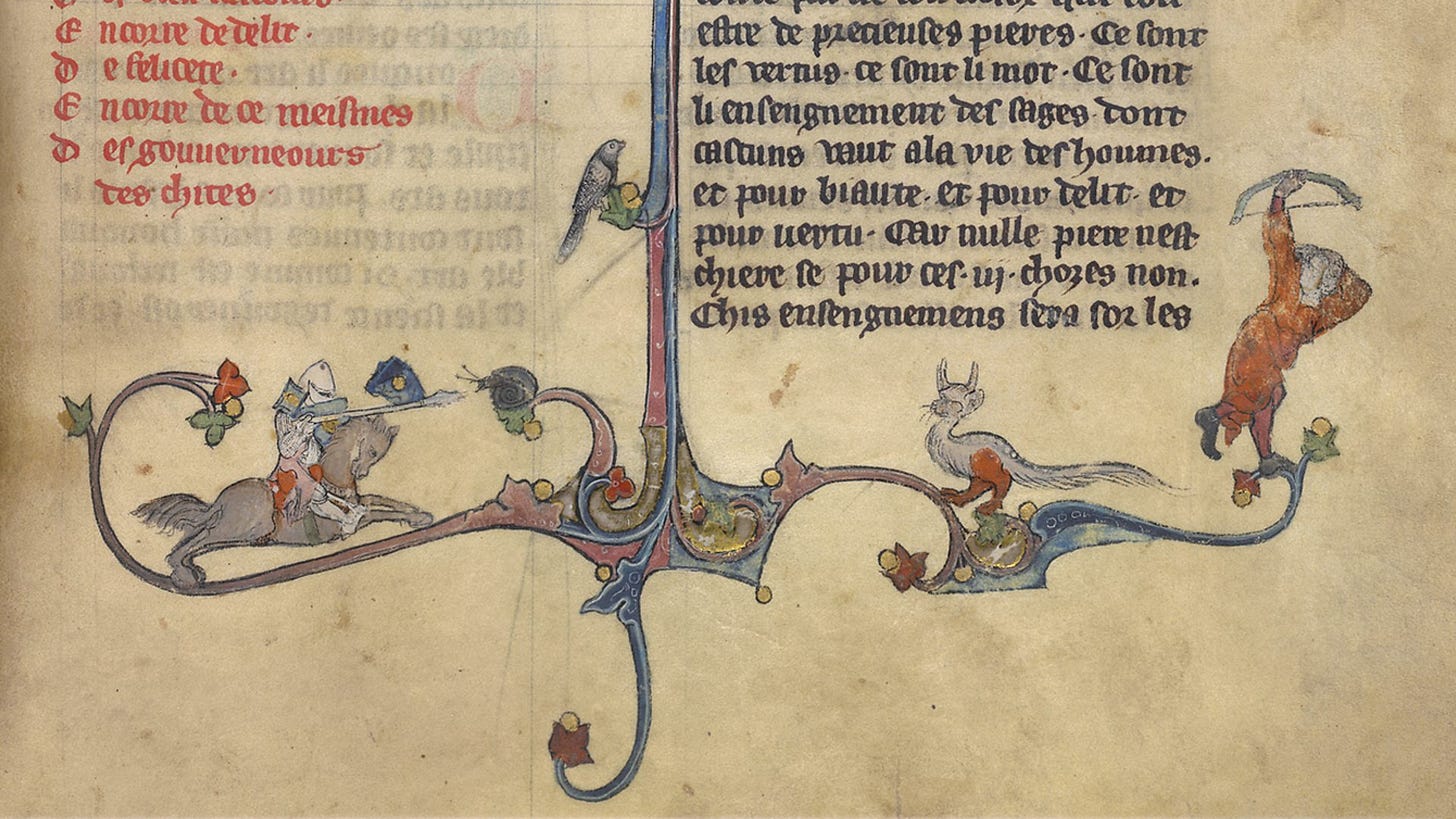 E ncorre de delit ·
D e felicete ·
E ncorre de ce meismes
D es gouuerneours
des chites ·
estre de precieuses pieres · Ce sont
les vertus · ce sont li mot · Ce sont
li ensengnement des sages · dont
cascuns vaut a la vie des houmes ·
et pour biaute · et pour delit · et
pour uertu · Car nulle piere nest
chiere se pour ces · iij · chozes non ·
Chis ensengnemens sera sor les